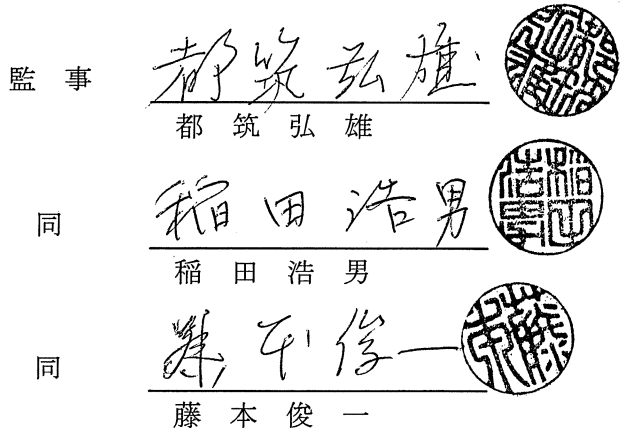 監事 都筑弘雄
都筑弘雄
同 稲田浩男
稲田浩男
同 藤本俊一
藤本俊一